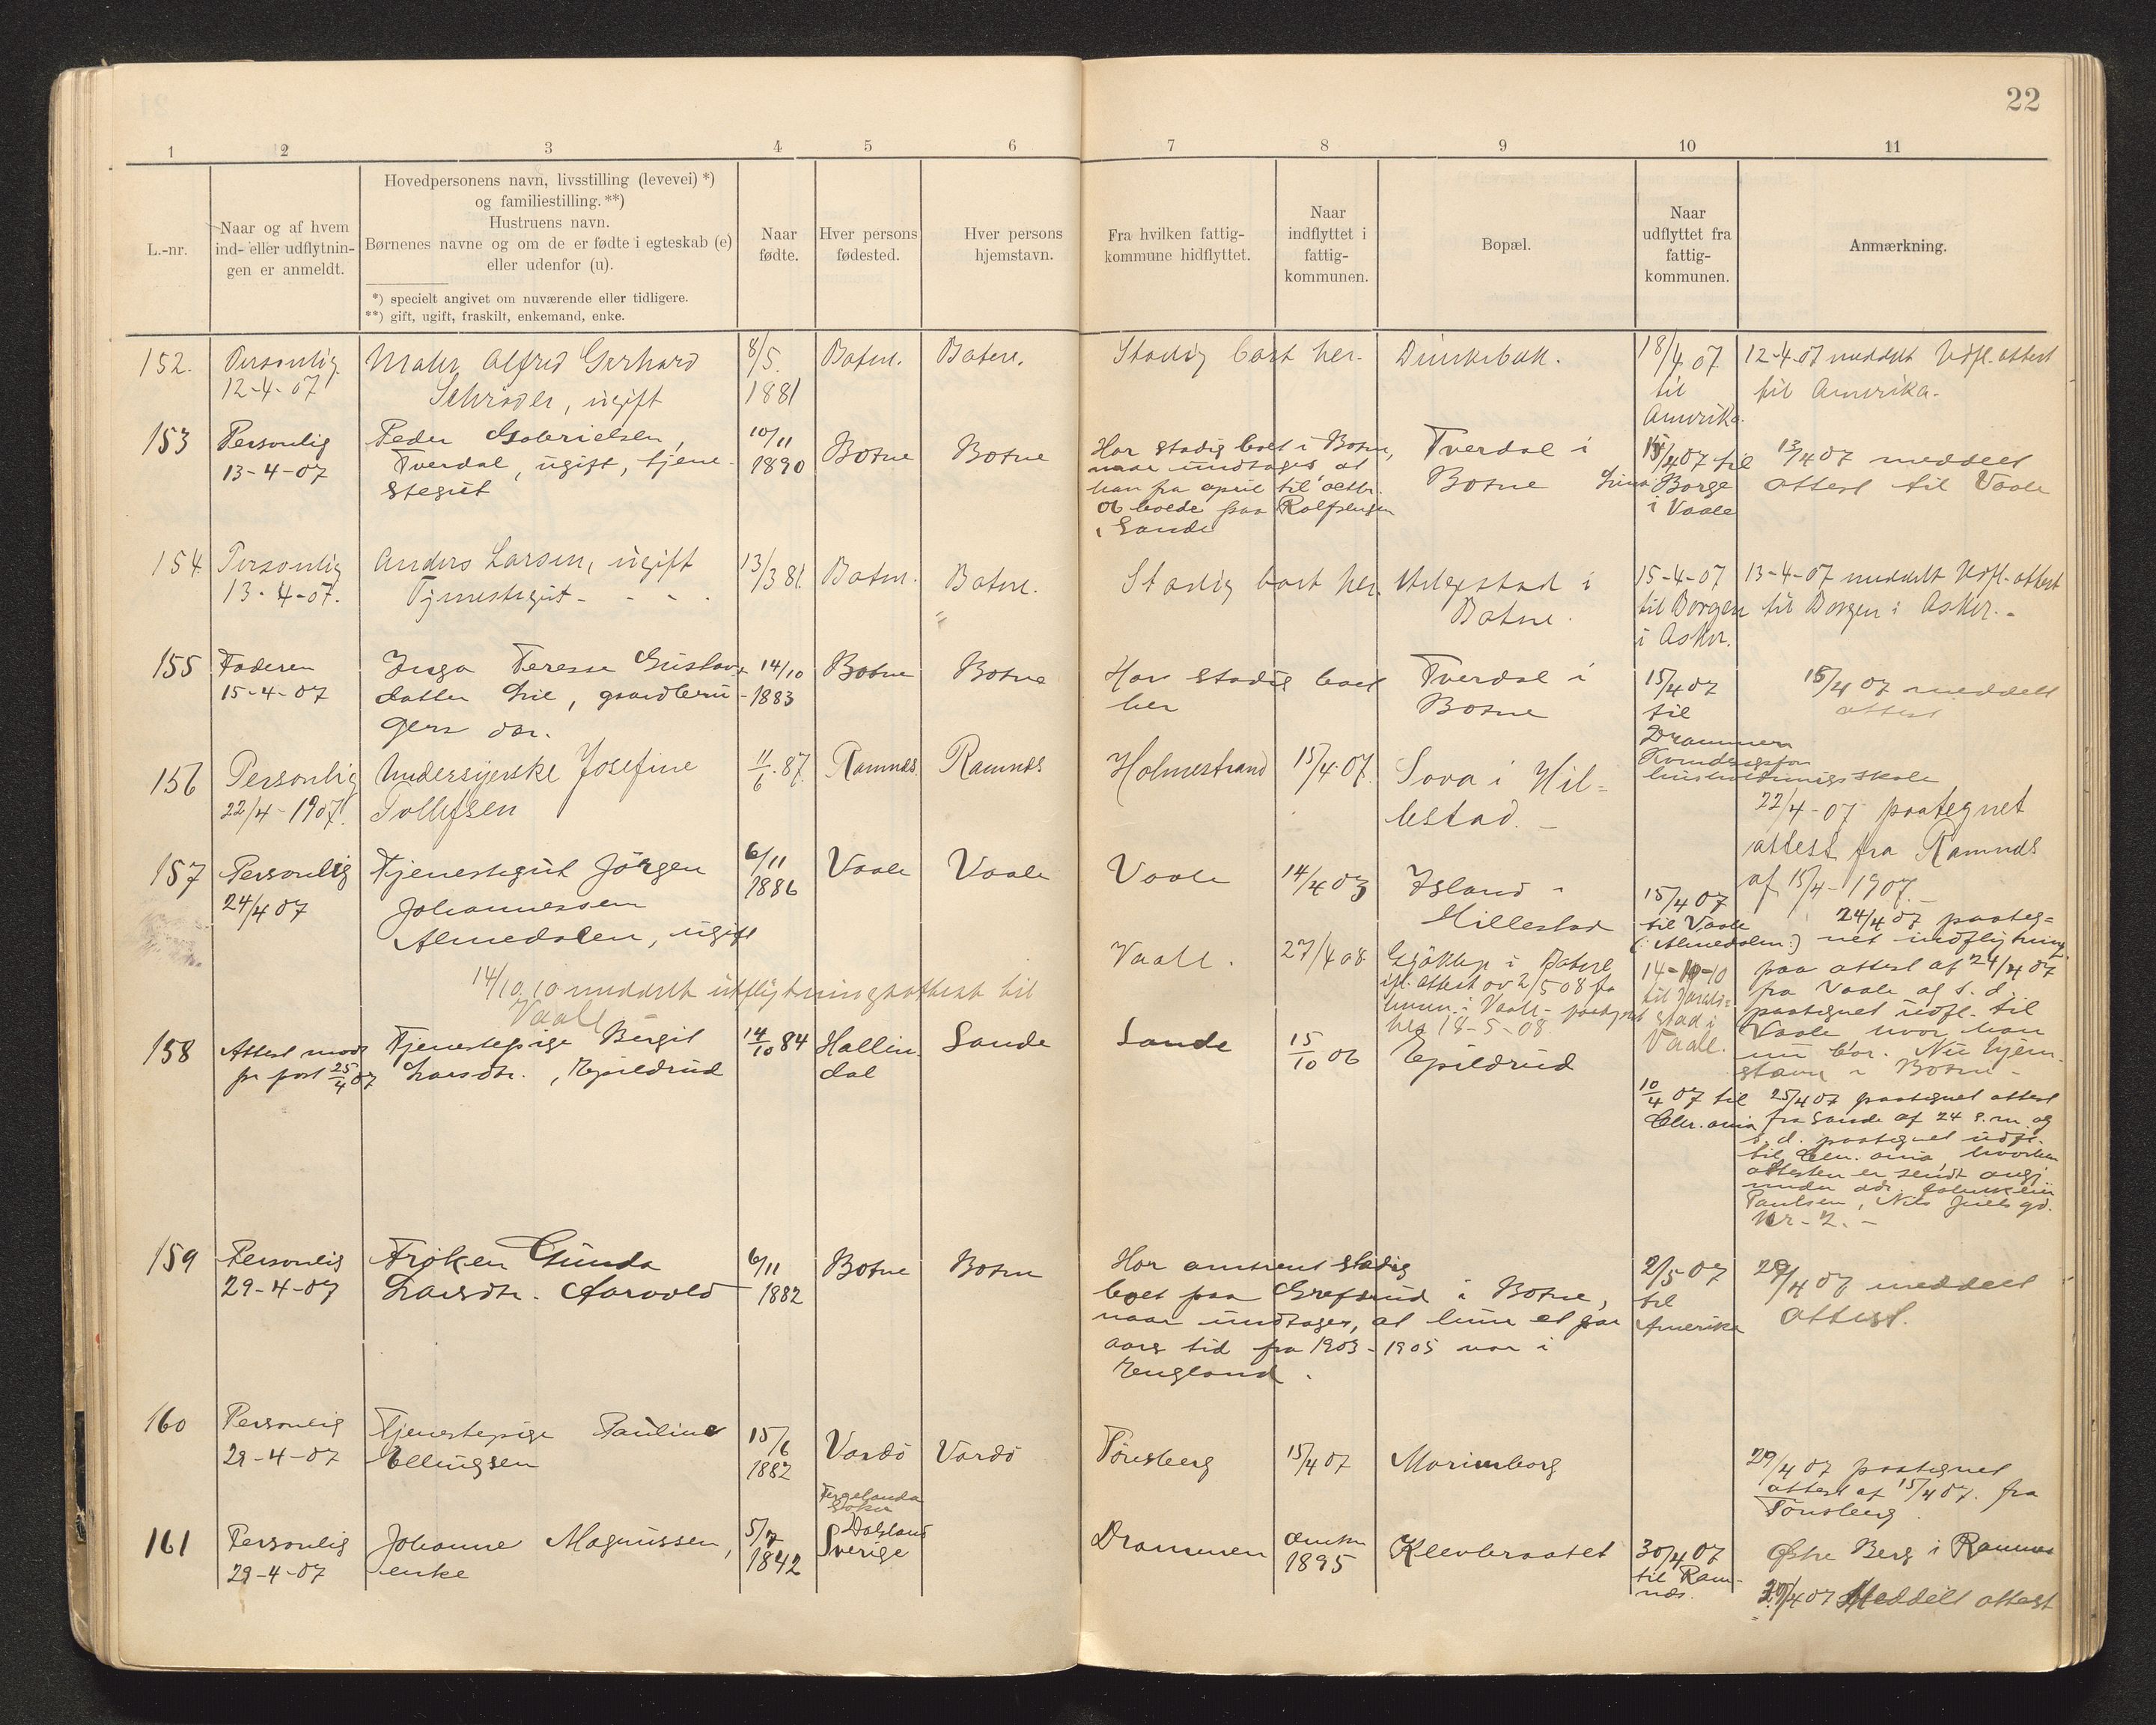 22
1 2 3 4 5 6 7 8 9 10 11
L.-nr.
Naar og af hvem
ind- eller udflytnin-
gen er anmeldt.
Hovedpersonens navn, livsstilling (levevei) *)
og familiestilling. **)
Hustruens navn.
Børnenes navne og om de er fødte i egteskab (e)
eller udenfor (u).
*) specielt angivet om nuværende eller tidligere.
**) gift, ugift, fraskilt, enkemand, enke.
Naar
fødte.
Hver persons
fødested.
Hver persons
hjemstavn.
Fra hvilken fattig-
kommune hidflyttet.
Naar
indflyttet i
fattig-
kommunen.
Bopæl.
Naar
udflyttet fra
fattig-
kommunen.
Anmærkning.
152.
Personlig
12-4-07
Maler Alfred Gerhard
Schrøder, ugift
8/5.
1881
Botne.
Botne.
Stadig boet her.
18/4 07
til
Amerika.
12-4-07 meddelt Udfl. attest
til Amerika.
153
Personlig
13-4-07
Peder Gabrielsen,
Tverdal, ugift, tjene-
stegut
10/11
1890
Botne
Botne
Har stadig boet i Botne,
naar undtages at
han fra april til oktbr.
06 boede paa Rolfsengen
i Sande
Tverdal i
Botne
15/4 07 til
Borge
i Vaale
13/4 07 meddelt
attest til Vaale
154
Personlig
13-4-07.
Anders Larsen, ugift
Tjenestegut - - -
13/3 81.
Botne.
Botne.
"
Stadig boet her.
i
Botne.
15-4-07
til Borgen
i Asker.
13-4-07 meddelt Udfl.-attest
til Borgen i Asker. -
155
Faderen
15-4-07
Inga Terese Gustav-
datter Lie, gaardbru-
gers dtr.
14/10
1883
Botne
Botne
Har stadig boet
her
Tverdal i
Botne
15/4 07
til
Drammen
15/4 07 meddelt
attest
156
Personlig
22/4-1907.
Undersyerske Josefine
Tollefsen
11/6. 87.
Ramnes
Ramnes
Holmestrand
15/4. 07.
Sova i Hil-
lestad. -
22/4-07 paategnet
attest fra Ramnes
af 15/4-1907. -
157
Personlig
24/4 07
Tjenestegut Jörgen
Johannessen
Almedalen, ugift
6/11
1886
Vaale
Vaale
Vaale
14/4 03
Island i
Hillestad
15/4 07
til Vaale
(: Almedalen :)
24/4 07 paateg-
net indflytning
paa attest af 24/4 07
fra Vaale og s. d.
paategnet udfl. til
Vaale hvor han
nu bor. Nu hjem-
stavn i Botne -
14/10.10 meddelt utflytningsattest til
Vaale
Vaale.
27/4 08
i Botne
ifl. attest ov 2/5 08 fra
i Vaale - paategnet
her 18-5-08.
14-10-10
til
stad i
Vaale.
158
Attest modt
pr post 25/4 07
Tjenestepige Bergit
Larsdtr., Epildrud
14/10 84
Hallin-
dal
Sande
Sande
15/10 06
Epildrud
10/4 07 til
Chr.ania
25/4 07 paategnet attest
fra Sande af 24 s.m. og
s. d. paategnet udfl.
til Chr. ania, hvorhen
attesten er sendt
under adr.
Paulsen, Nils Juels gd.
Nr-2. -
159
Personlig
29-4-07
Frøken Gunda
Larsdtr. Aarvold
6/11
1882
Botne
Botne
Har omtrent stadig
boet paa Grefsrud i Botne,
naar undtages, at hun et par
aars tid fra 1903-1905 var i
England.
2/5-07
til
Amerika
29/4 07 meddelt
attest.
160
Personlig
29-4-07
Tjenestepige Pauline
Ellingsen
15/6
1882
Vardö
Vardö
Tönsberg
15/4 07
Marienborg
29/4 07 paategnet
attest af 15/4 07. fra
Tönsberg.
161
Personlig
29-4-07
Johanne Magnussen,
enke
5/7
1842
Fergelanda
Soken
Dalsland
Sverige
Drammen
omkr
1895
Klevbraatet
30/4 07
til Ram-
nes.
Østre Berg i Ramnes
29/4 07 Meddelt attest